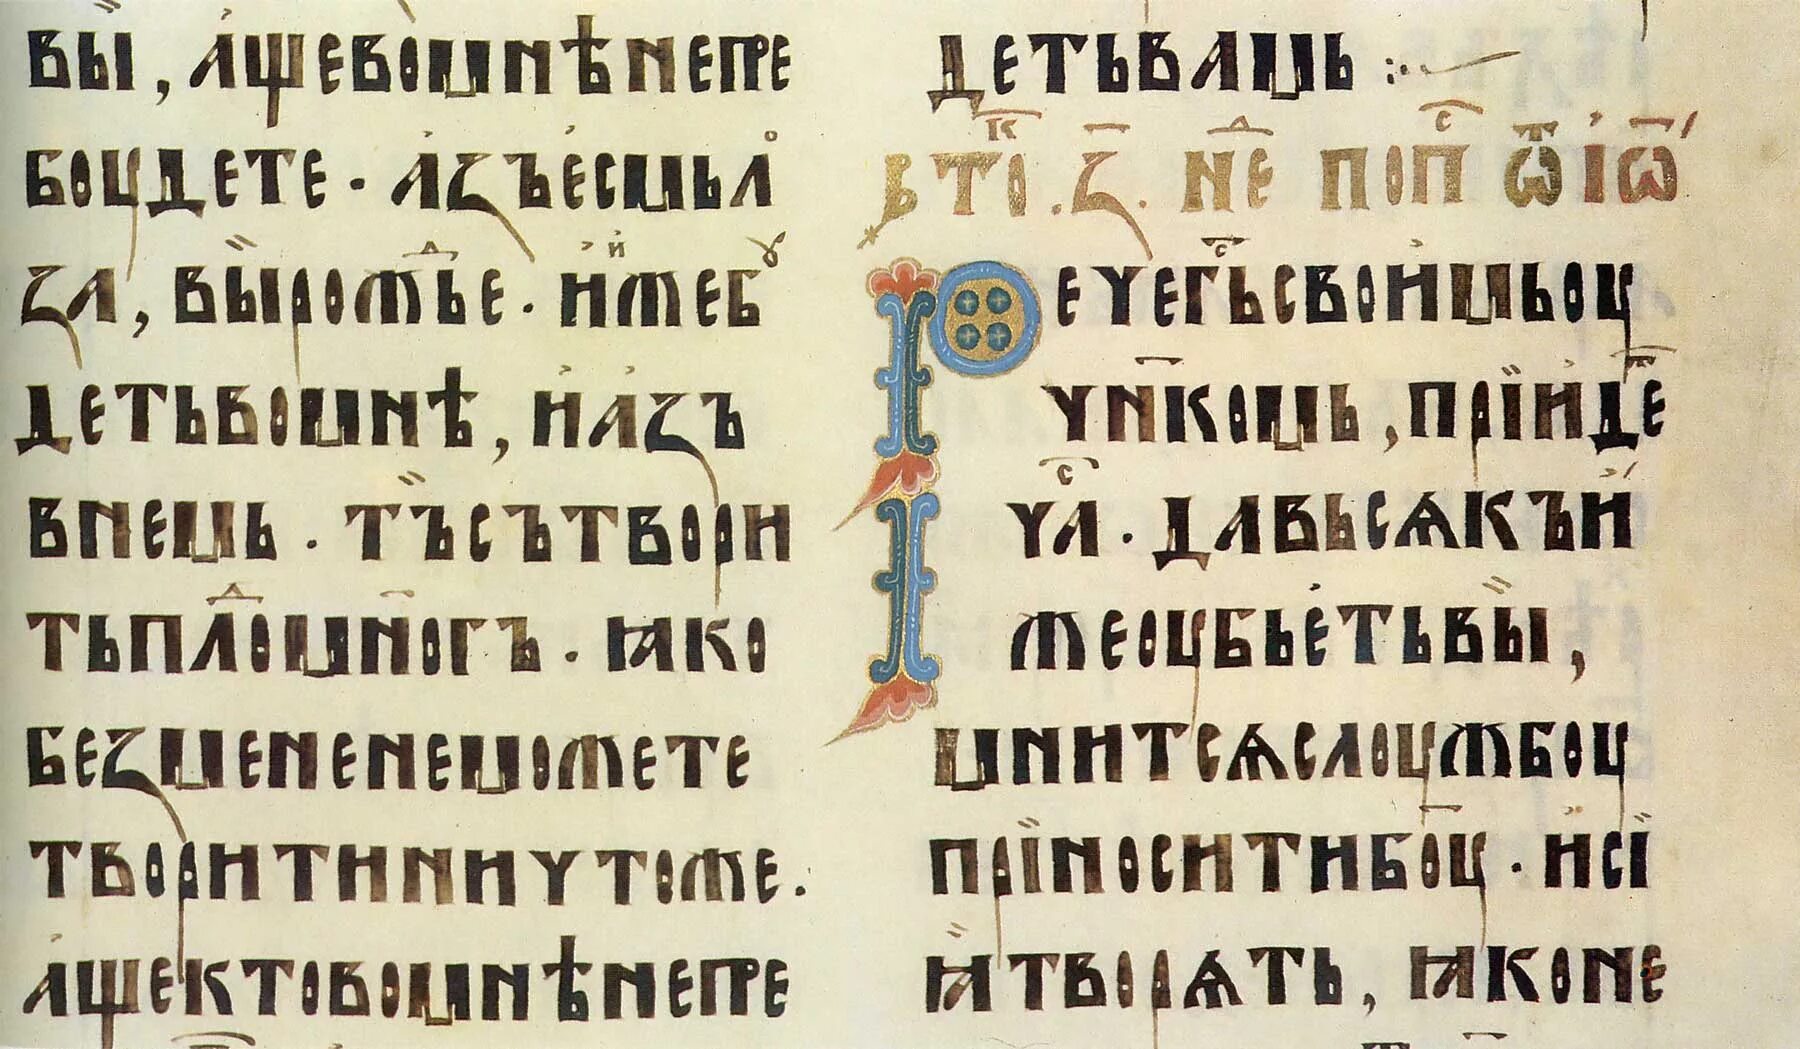 вы, а҆щевомнѣнепре
боудете · а҆зъе҆смьл
за, выромⷣье · и҆мебꙋ
детьвомнѣ, и҆а҆зъ
внемь · тъсътвори
тьплⷣомног҄ъ · ꙗко
безменененеможете
творитиничтоже ·
а҆щектовомнѣнепре
детьвашь :·
втоⷦ҇ · з҃ · неⷣ попⷭ҇ ѿ і҆ѡ҃
речегⷭ҇ьсвои҆мьоу
чн҃комь, прїи҆деⷮ
чаⷭ҇ · давьсѧкъи҆
жеоубье҆тьвы,
мнитсѧслоужбоу
приноситибо҃у · и҆сї
ꙗ҆творѧть, ꙗконе